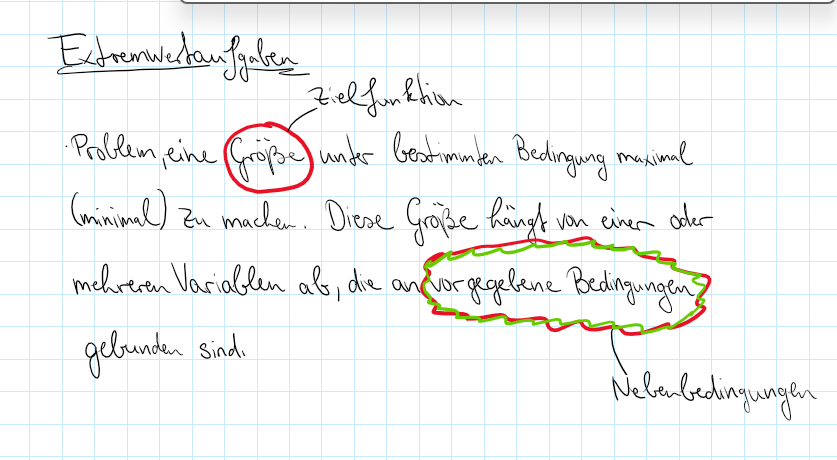 Extremwertaufgaben
Zielfunktion
Problem, eine Größe unter bestimmten Bedingung maximal
(minimal) zu machen. Diese Größe hängt von einer oder
mehreren Variablen ab, die an vorgegebene Bedingungen
gebunden sind.
Nebenbedingungen